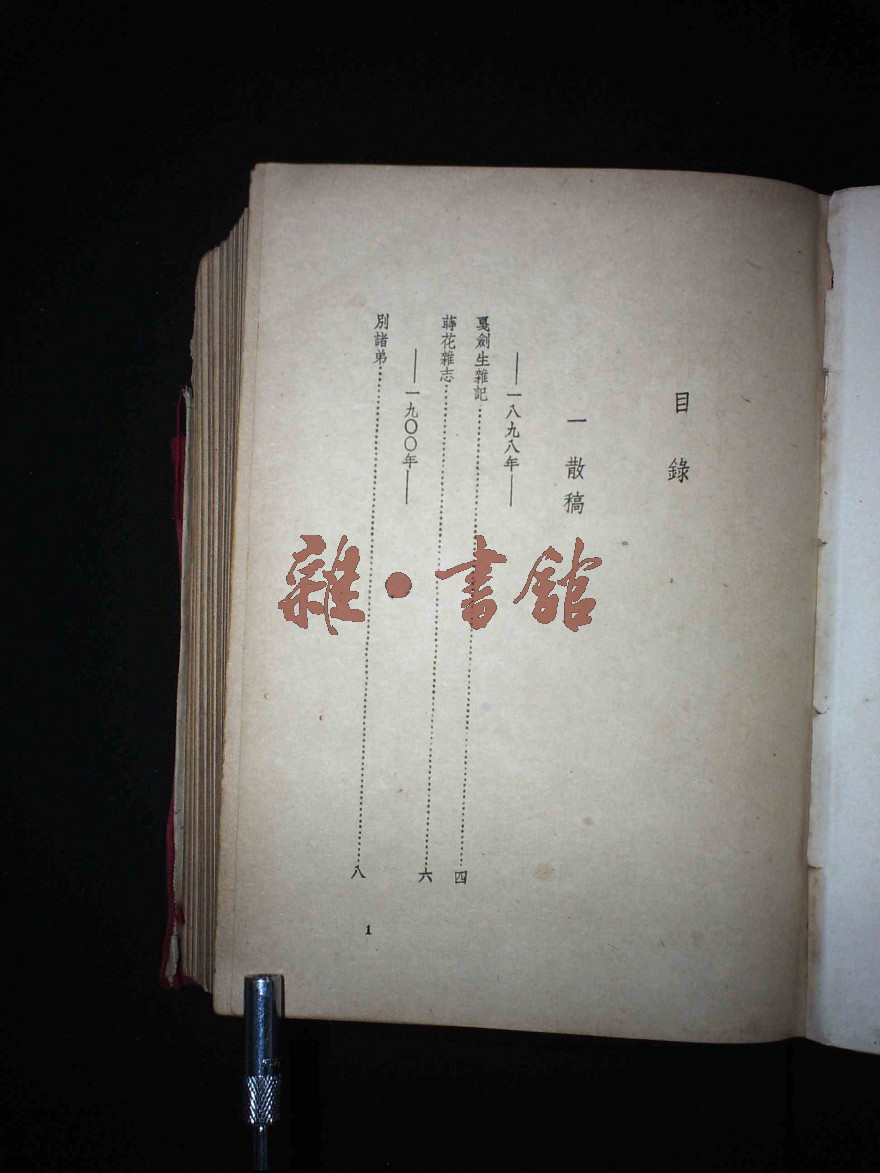 目錄
一 散稿
——一八九八年——
戛劍生雜記……四
蒔花雜志……六
——一九〇〇年——
別諸弟……八
1
雜·書館